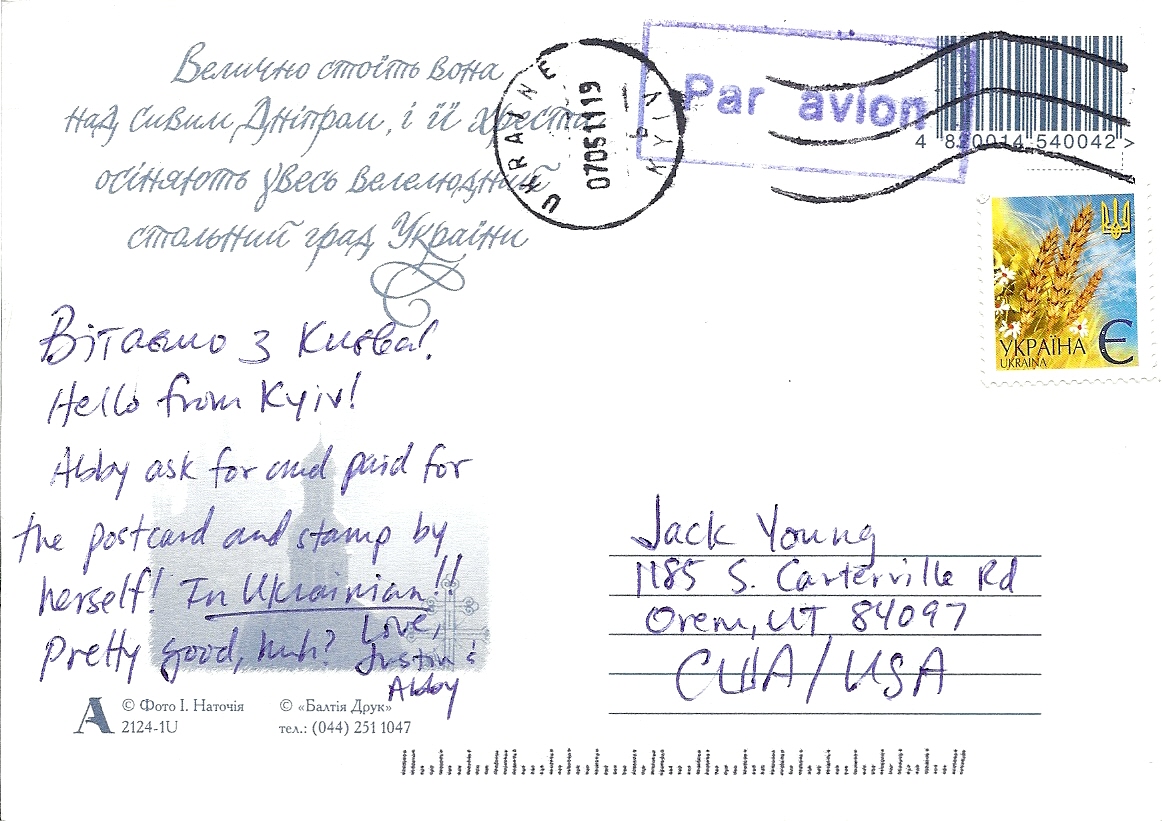 Велично стоїть вона
над сивим Дніпром, і її хреста
осіняють увесь велелюдний
стольний град України
UKRAINE
0705111919
KYIV
Par avion
4 820014 540042 >
УКРАЇНА
UKRAINA
Є
Вітаємо з Києва!
Hello from Kyiv!
Abby ask for and paid for
the postcard and stamp by
herself! In Ukrainian!!
Pretty good, huh?
Love,
Justin &
Abby
Jack Young
1185 S. Carterville Rd
Orem, UT 84097
США/USA
А
© Фото І. Наточія
2124-1U
© «Балтія Друк»
тел.: (044) 251 1047